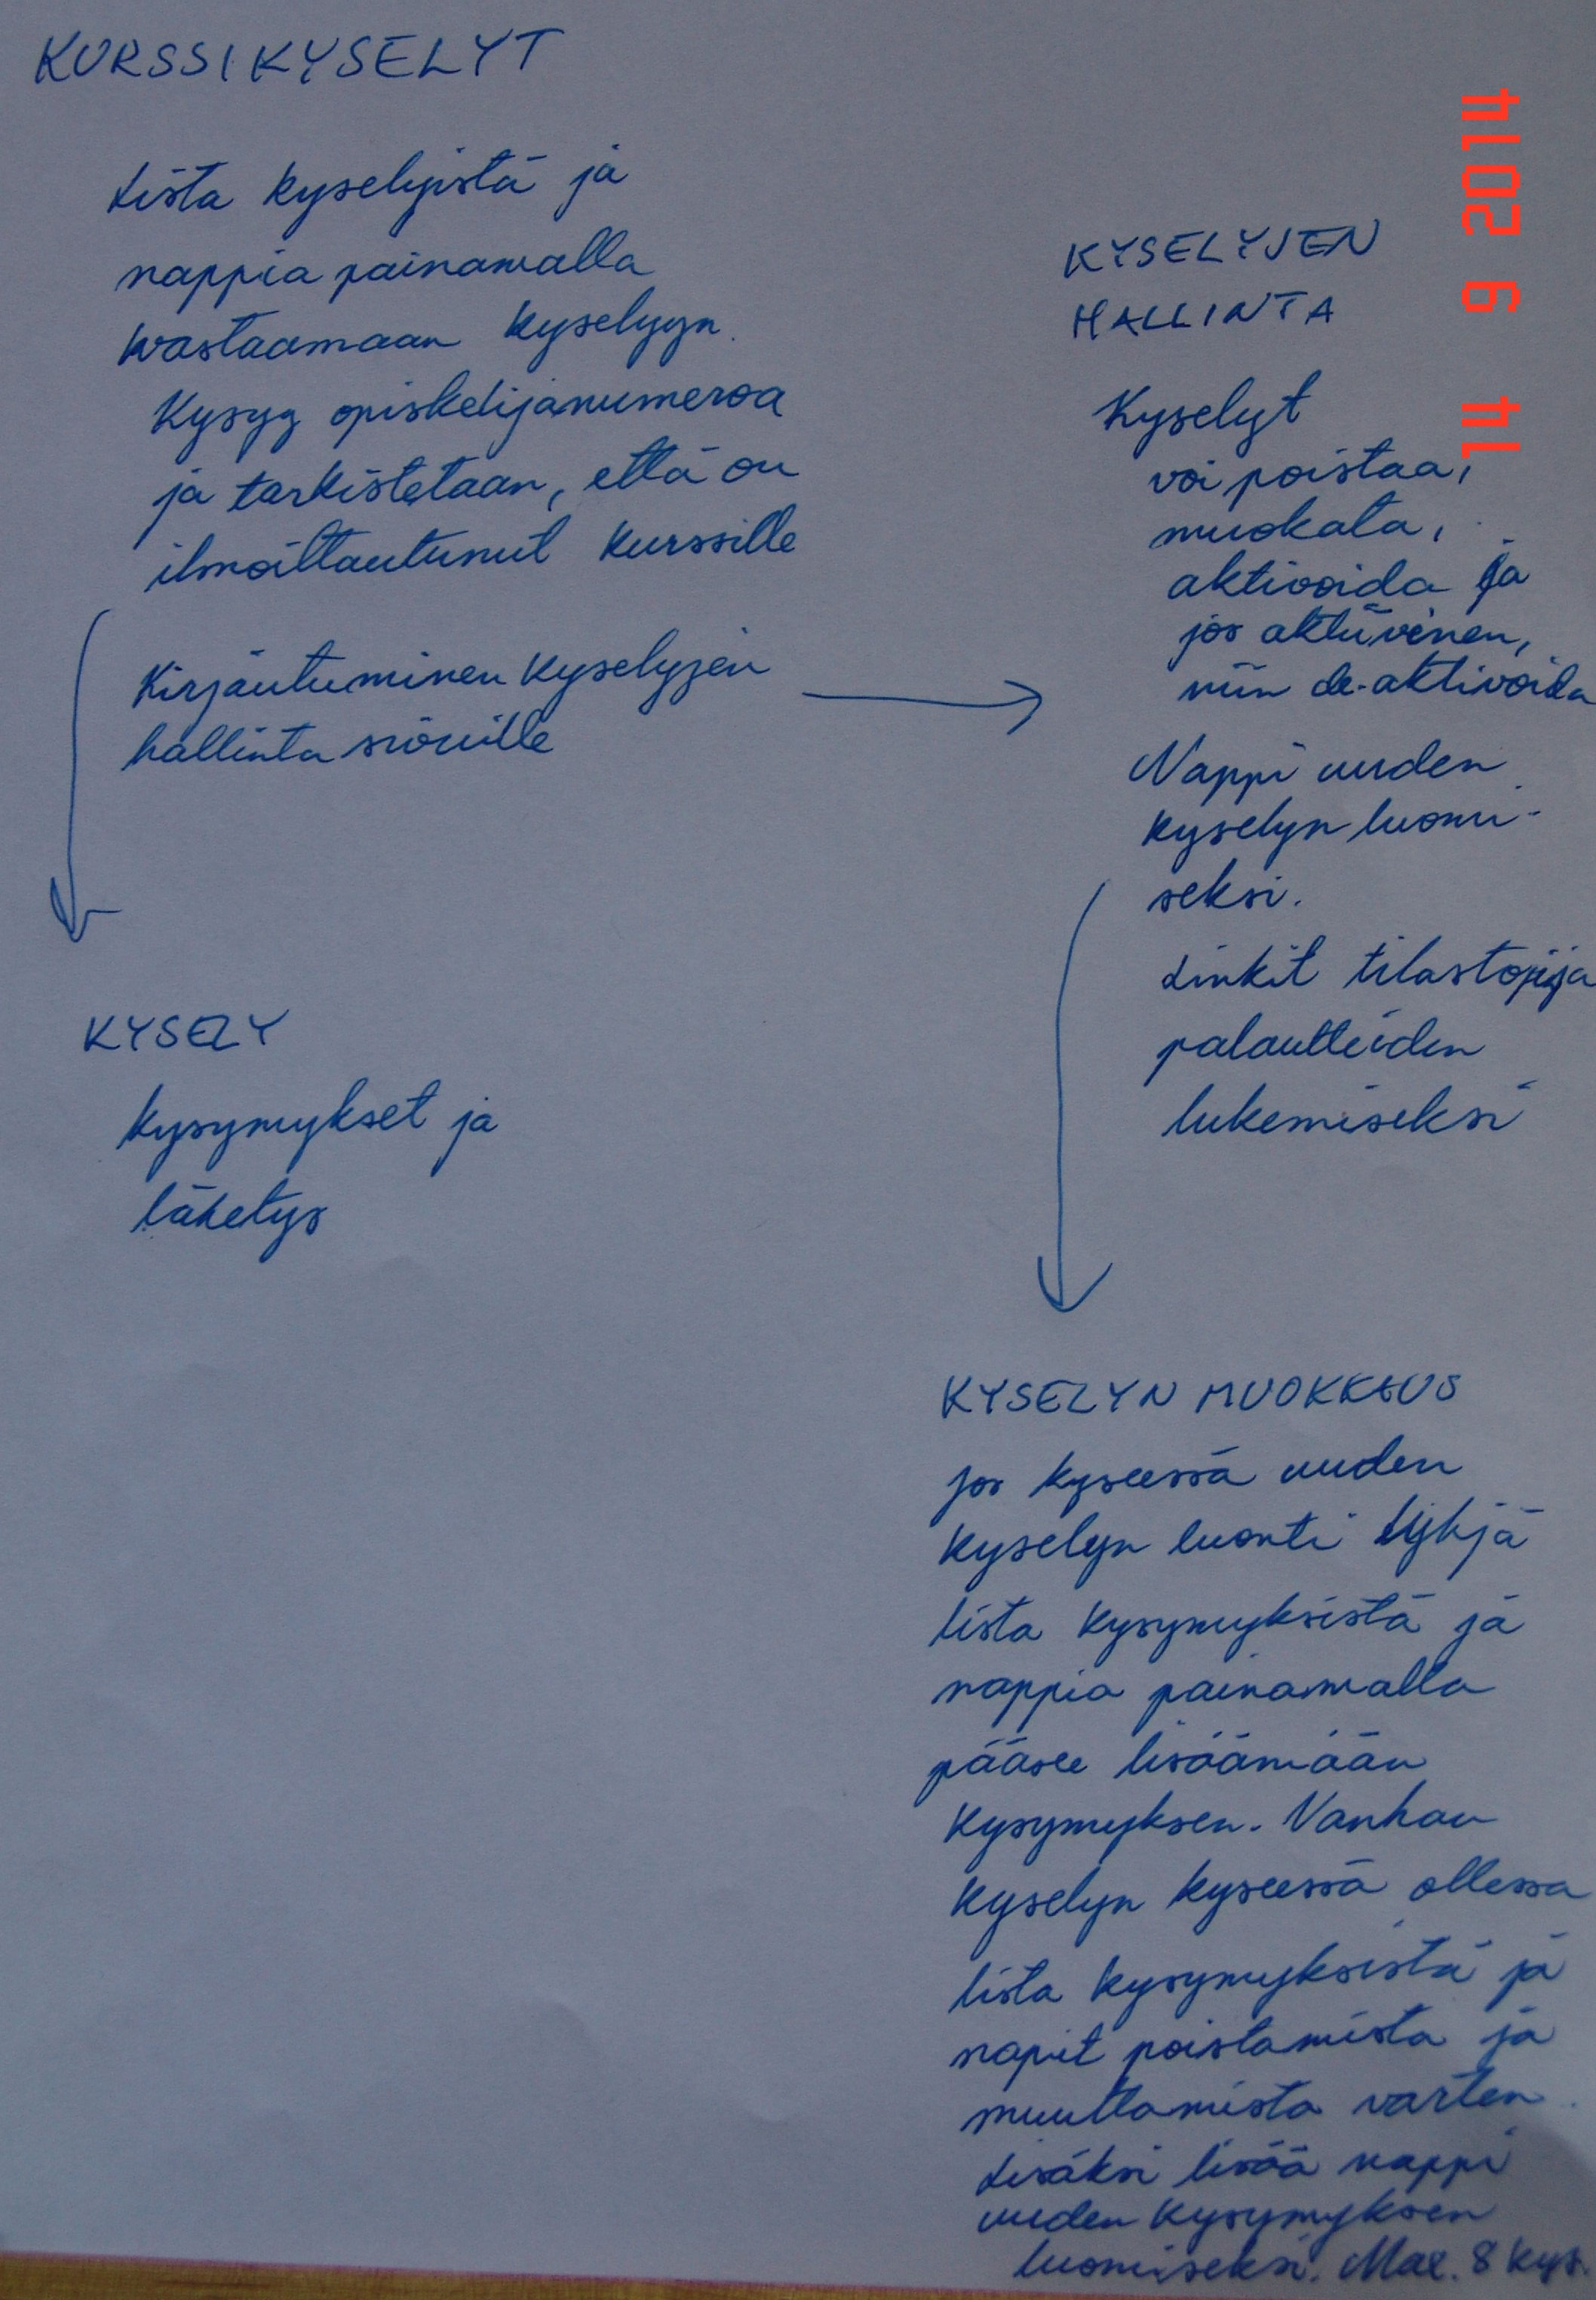 KURSSIKYSELYT
Lista kyselyistä ja
nappia painamalla
vastaamaan kyselyyn.
Kysyy opiskelijanumeroa
ja tarkistetaan, että on
ilmoittautunut kurssille
Kirjautuminen kyselyjen
hallinta sivuille
KYSELY
kysymykset ja
lähetys
KYSELYJEN
HALLINTA
Kyselyt
voi poistaa,
muokata,
aktivoida ja
jos aktiivinen,
niin de-aktivoida
Nappi uuden
kyselyn luomi-
seksi.
Linkit tilastojen ja
palautteiden
lukemiseksi
KYSELYN MUOKKAUS
Jos kyseessä uuden
kyselyn luonti tyhjä
lista kysymyksistä ja
nappia painamalla
pääsee lisäämään
kysymyksen. Vanhan
kyselyn kyseessä ollessa
lista kysymyksistä ja
napit poistamista ja
muuttamista varten
Lisäksi lisää nappi
uuden kysymyksen
luomiseksi. Max. 8 kys.
14 6 2014